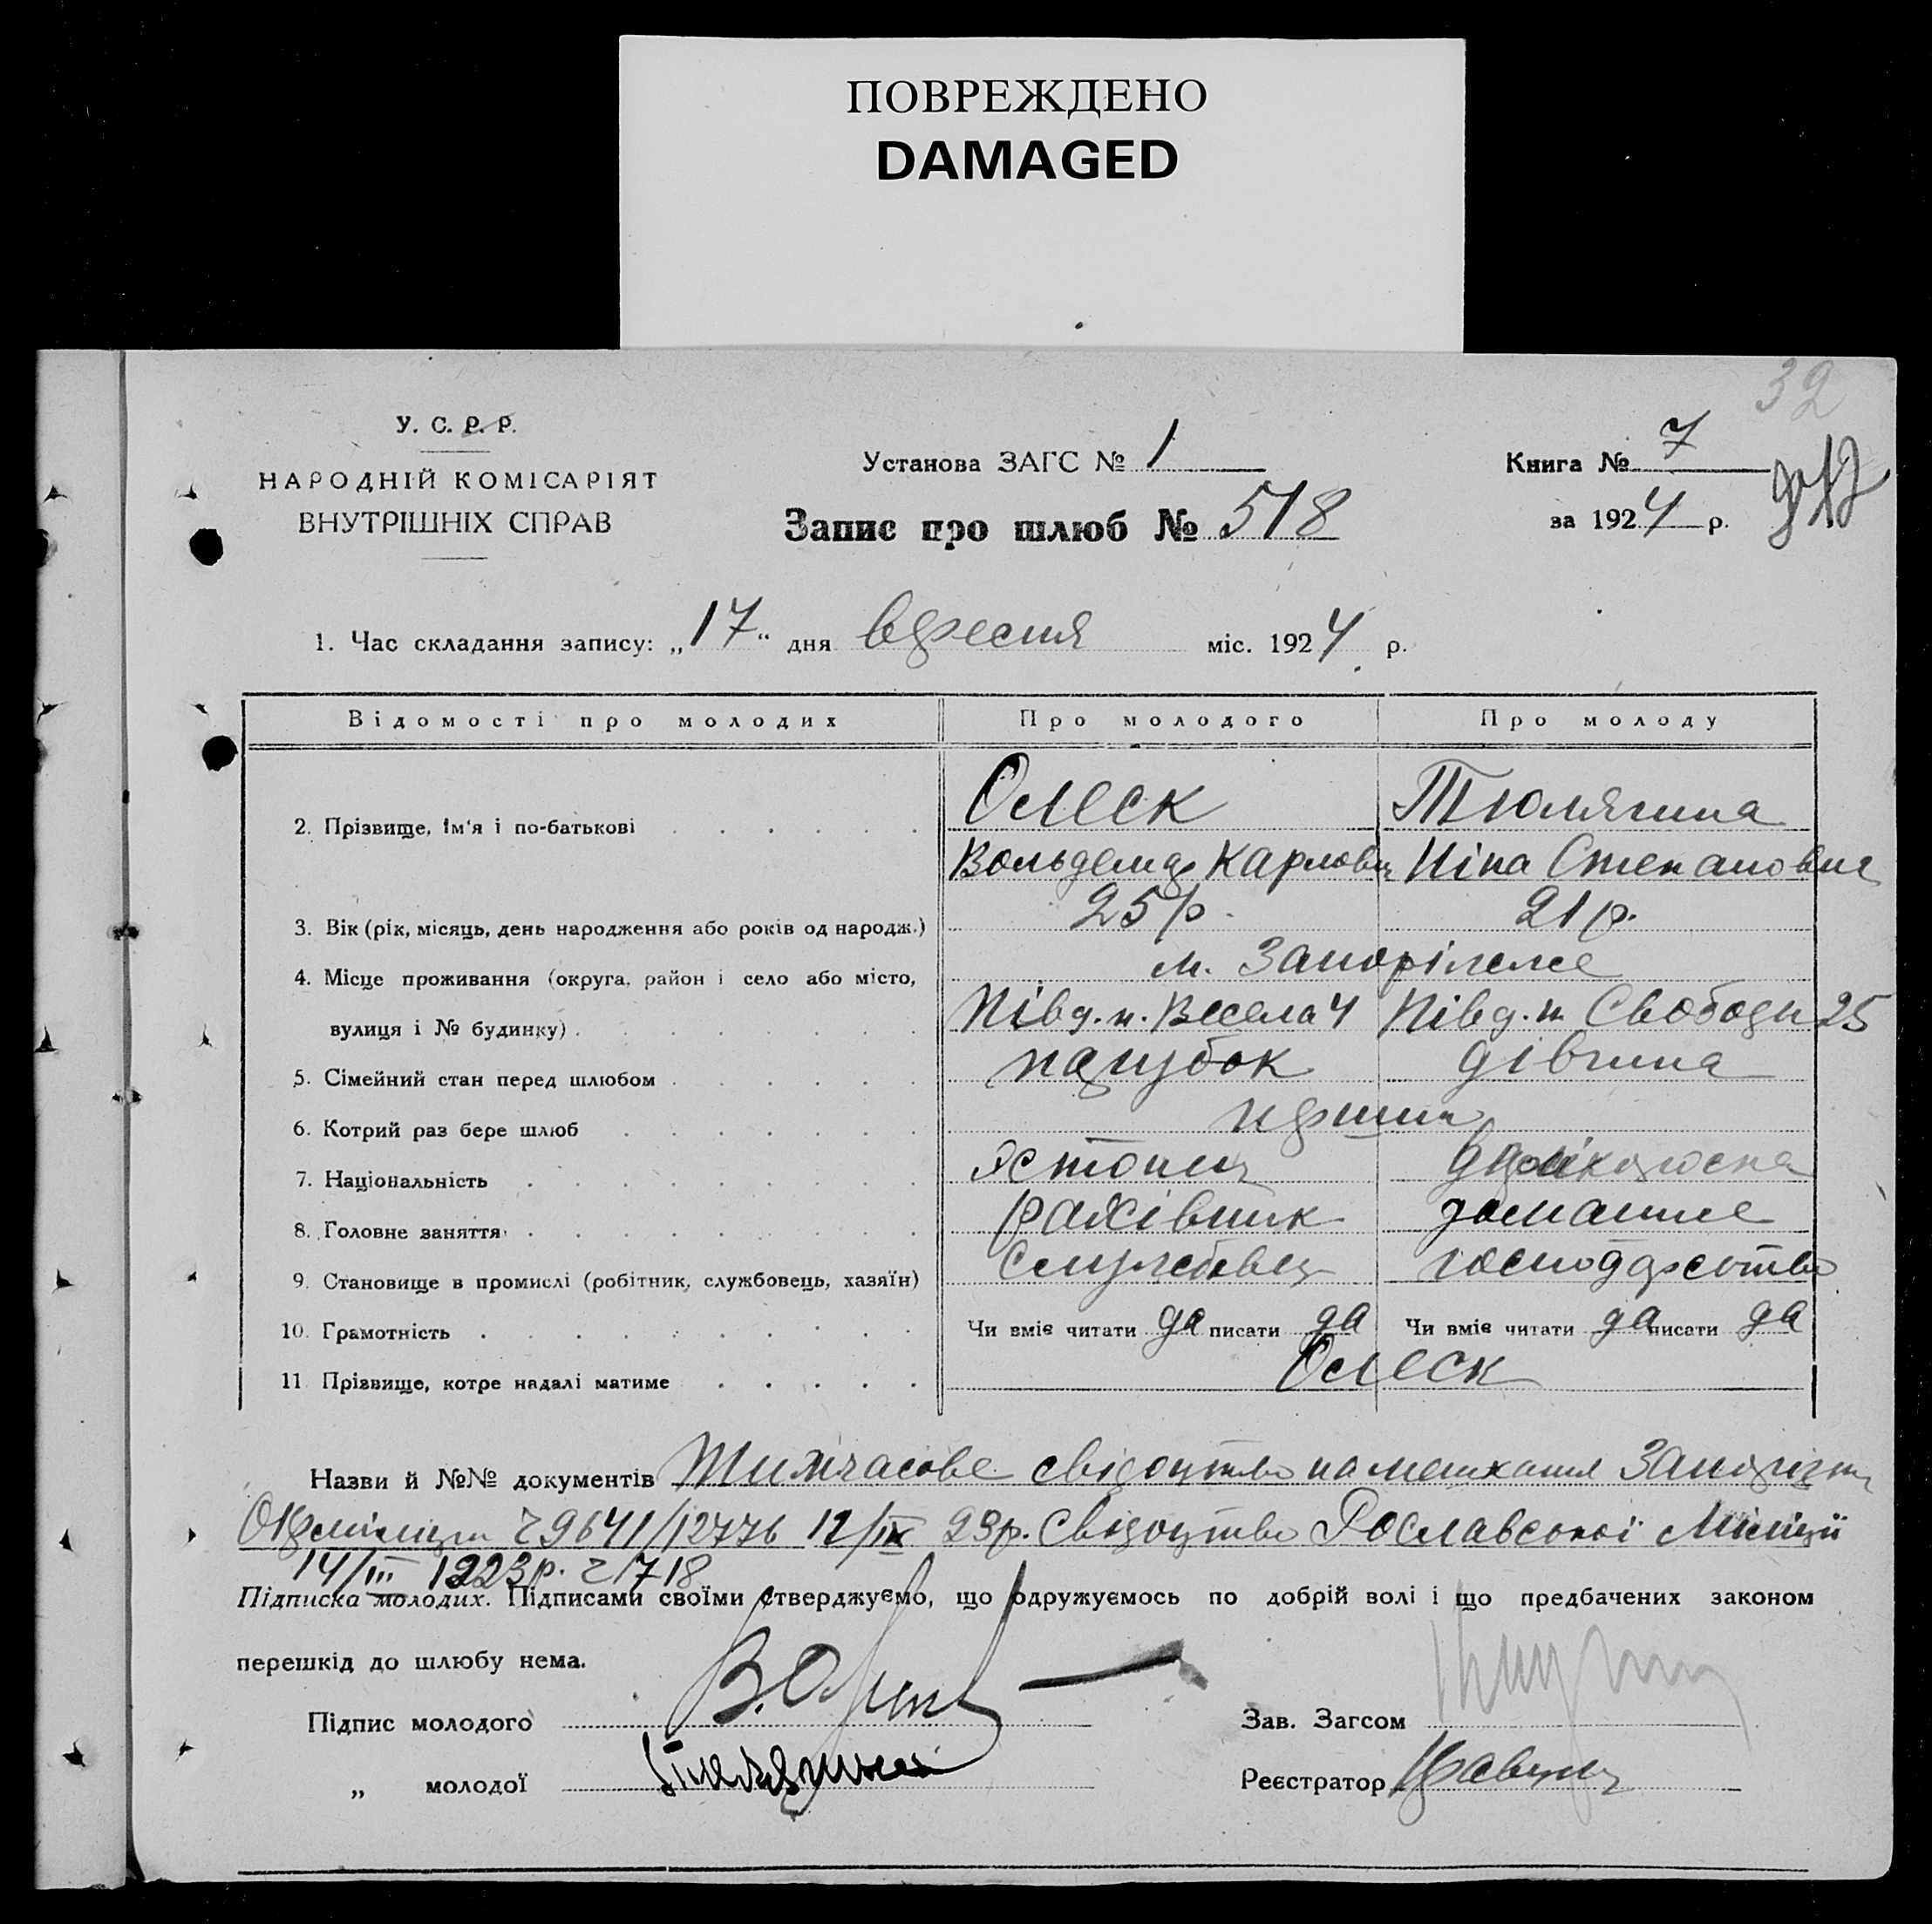 ПОВРЕЖДЕНО
DAMAGED
32
У. С. Р. Р.
НАРОДНІЙ КОМІСАРІЯТ
ВНУТРІШНІХ СПРАВ
Установа ЗАГС № 1
Книга № 7
за 1924 р.
Запис про шлюб № 518
1. Час складання запису: „17“ дня вересня міс. 1924 р.
Відомості про молодих Про молодого Про молоду
2. Прізвище, ім'я і по-батькові Олеск Тюлягина
Вольдемар Карлович Ніна Степановна
3. Вік (рік, місяць, день народження або років од народж.) 25 р. 21 р.
4. Місце проживання (округа, район і село або місто, м. Запоріжжє
вулиця і № будинку) Півд. п. Весела 4 Півд. п. Свободи 25
5. Сімейний стан перед шлюбом парубок дівчина
6. Котрий раз бере шлюб перший
7. Національність Эстонець
8. Головне заняття рахівник домашнє
9. Становище в промислі (робітник, службовець, хазяїн) Службовець господарство
10. Грамотність Чи вміє читати да писати да Чи вміє читати да писати да
11 Прізвище, котре надалі матиме Олеск
Назви й №№ документів Тимчасове свідоцтво на мешкання
Окрміліции č 9641/12776 12/IX 23р. Свідоцтво Рославської Міліції
14/III 1923р. č 1718
Підписка молодих. Підписами своїми стверджуємо, що одружуємось по добрій волі і що предбачених законом
перешкід до шлюбу нема.
Підпис молодого
Зав. Загсом
„ молодої
Реєстратор